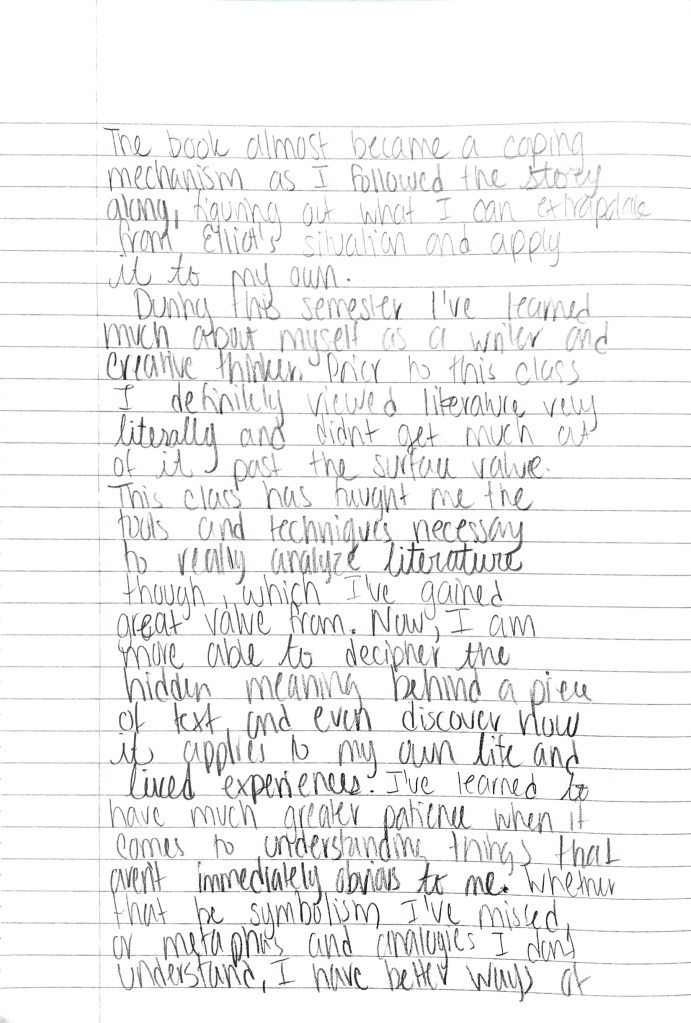 The book almost became a coping
mechanism as I followed the story
along, figuring out what I can extrapolate
from Elliot's situation and apply
it to my own.
During this semester I've learned
much about myself as a writer and
creative thinker. Prior to this class
I definitely viewed literature very
literally and didnt get much out
of it past the surface value.
This class has taught me the
tools and techniques necessary
to really analyze literature
though, which I've gained
great value from. Now, I am
more able to decipher the
hidden meaning behind a piece
of text, and even discover how
it applies to my own life and
lived experiences. I've learned to
have much greater patience when it
comes to understanding things that
arent immediately obvious to me. Whether
that be symbolism I've missed,
or metaphors and analogies I dont
understand, I have better ways of